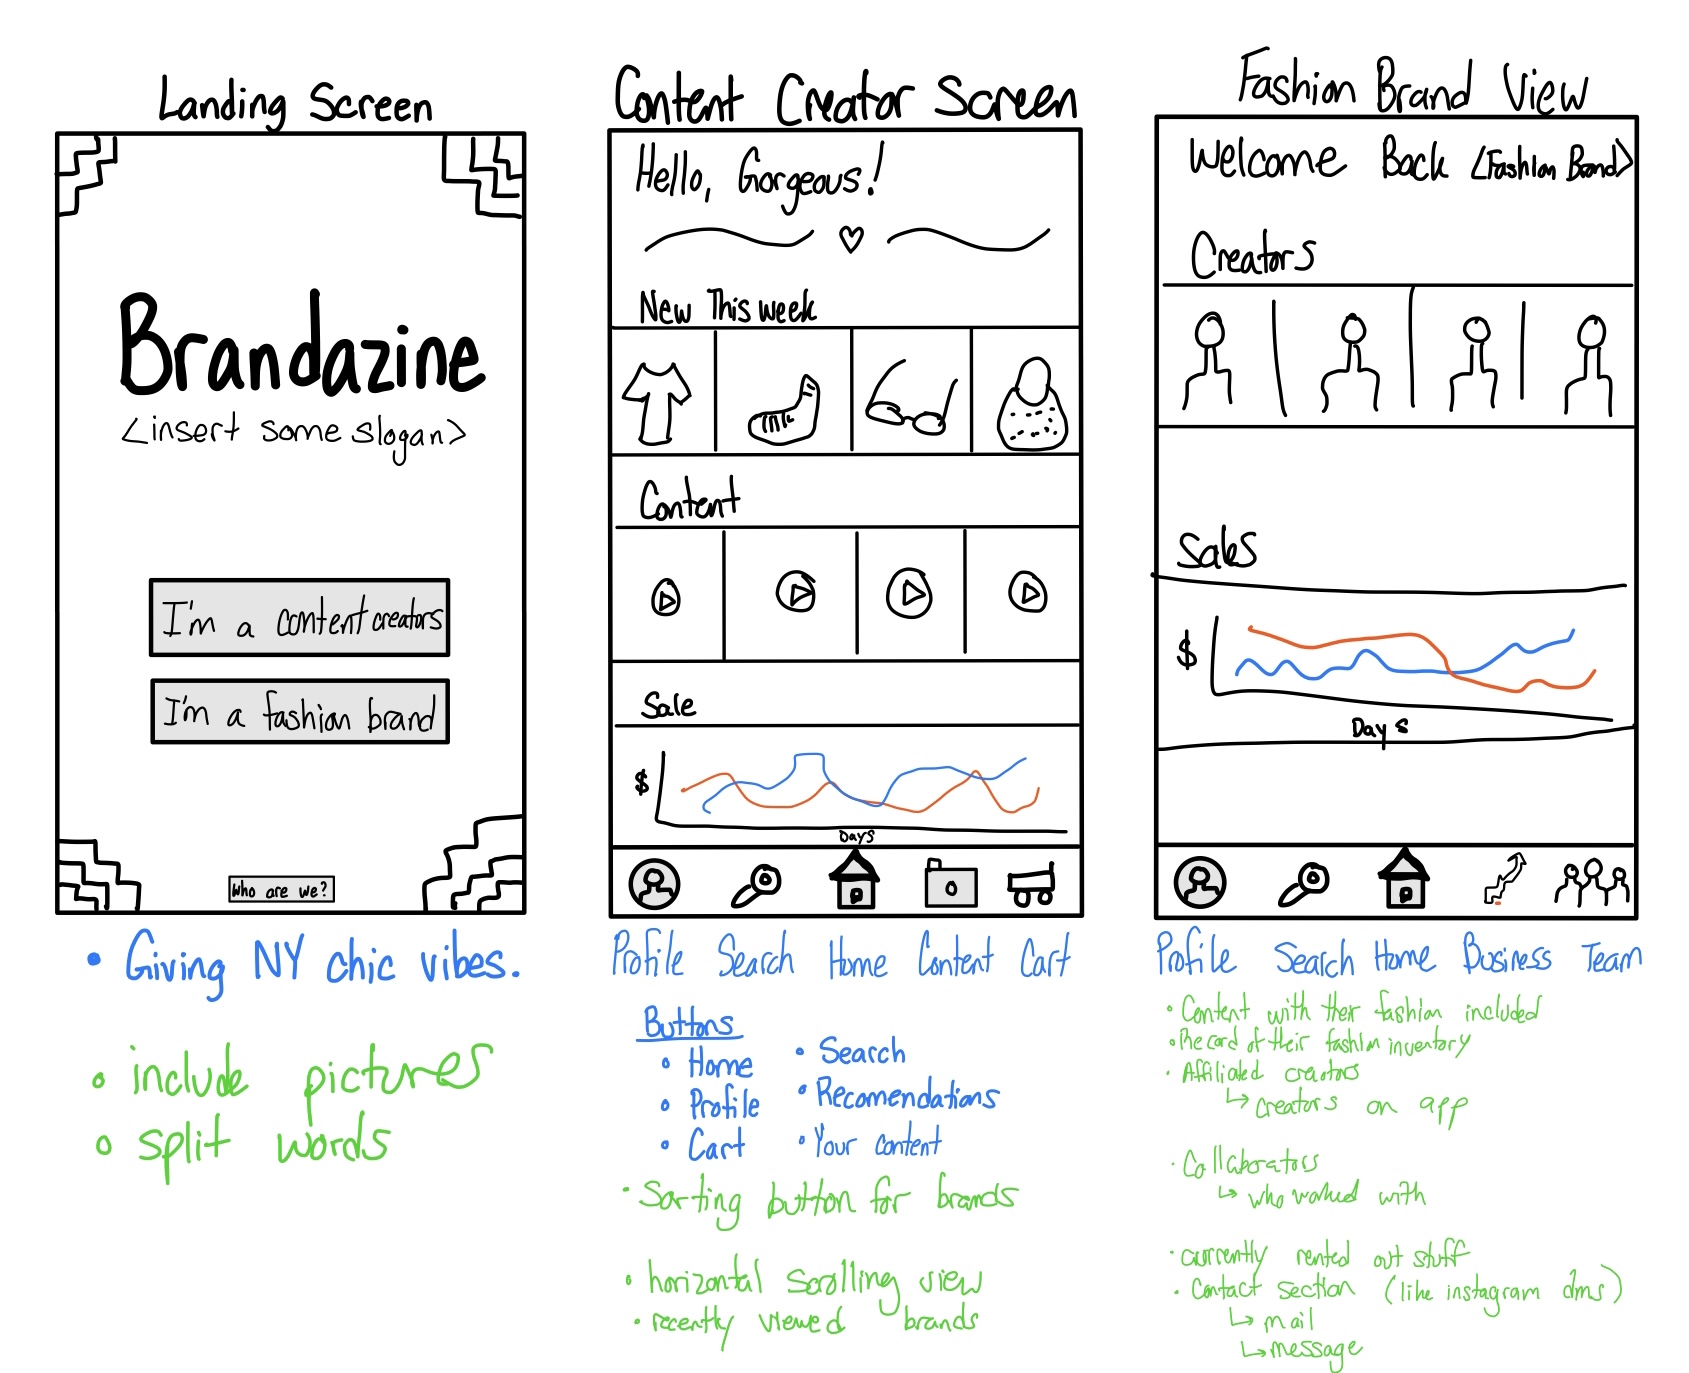 Landing Screen
Brandazine
<insert some slogan>
I'm a content creators
I'm a fashion brand
Who are we?
• Giving NY chic vibes.
• include pictures
• split words
Content Creator Screen
Hello, Gorgeous!
New This week
Content
Sale
$
Days
Profile Search Home Content Cart
Buttons
• Home
• Profile
• Cart
• Search
• Recomendations
• Your content
• Sorting button for brands
• horizontal scrolling view
• recently viewed brands
Fashion Brand View
Welcome Back <Fashion Brand>
Creators
Sales
$
Days
Profile Search Home Business Team
• Content with their fashion included
• Record of their fashion inventory
• Affiliated creators
↳ creators on app
• Collaborators
↳ who worked with
• currently rented out stuff
• Contact section (like instagram dms)
↳ mail
↳ message